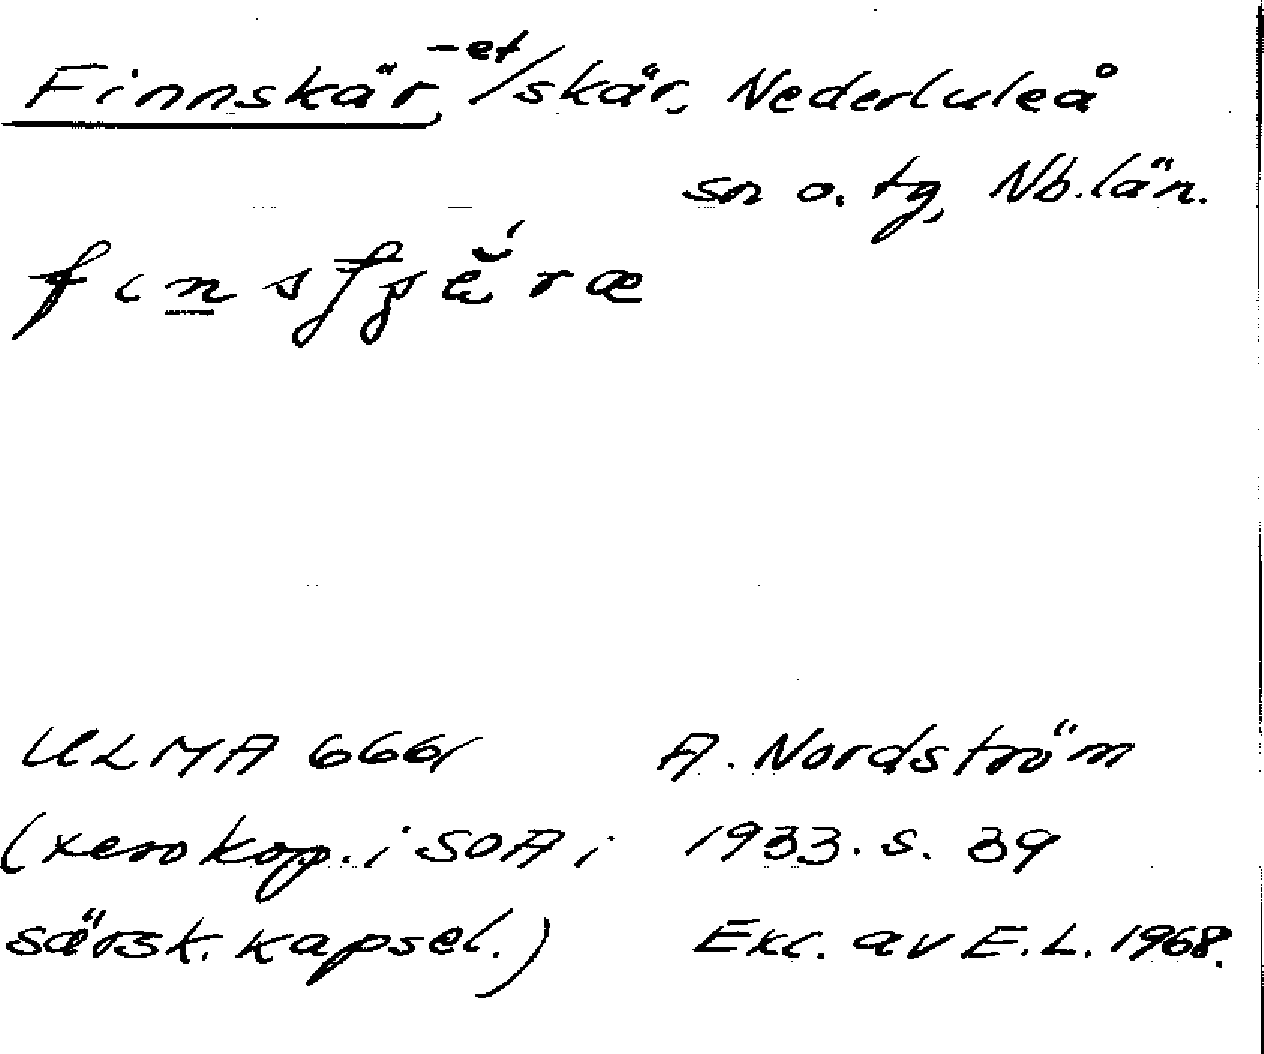 Finnskär, -et / skär, Nederluleå
sn o. tg, Nb. län.
ULMA 6661 A. Nordström
(xerokop. i SOA i 1933. s. 39
särsk. kapsel.) Exc. av E.L. 1968.